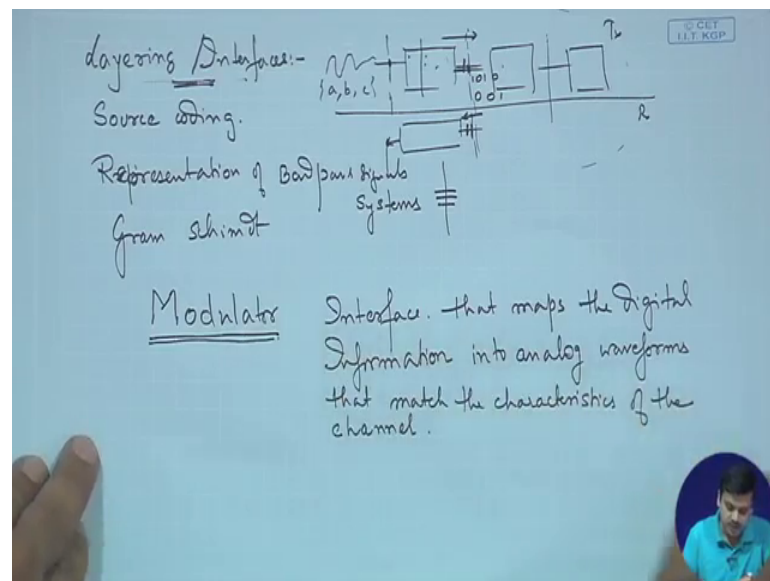 Layering Interfaces:-
{a, b, c}
1010
001
Tx
© CET
I.I.T. KGP
Source coding.
R
Representation of Bandpass signals
Systems
Gram Schimdt
Modulator
Interface. that maps the Digital
Information into analog waveforms
that match the characteristics of the
channel.